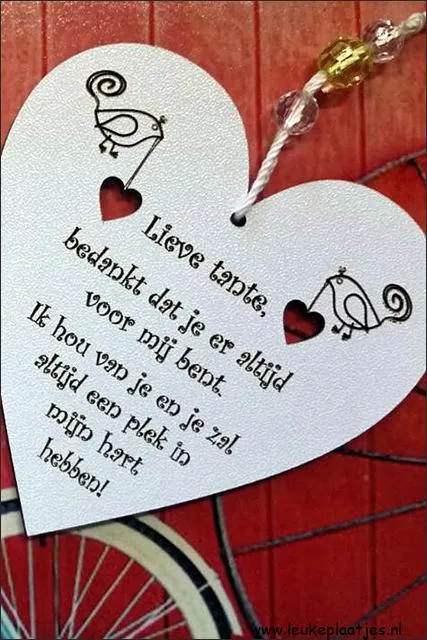 Lieve tante,
bedankt dat je er altijd
voor mij bent.
Ik hou van je en je zal
altijd een plek in
mijn hart
hebben!
www.leukeplaatjes.nl